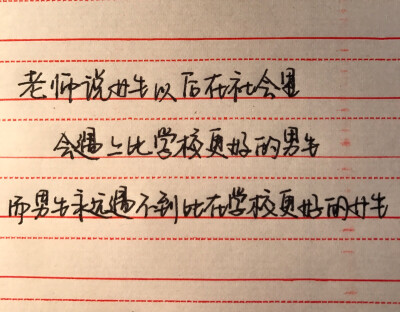 老师说女生以后在社会里
会遇上比学校更好的男生
而男生永远遇不到比在学校更好的女生